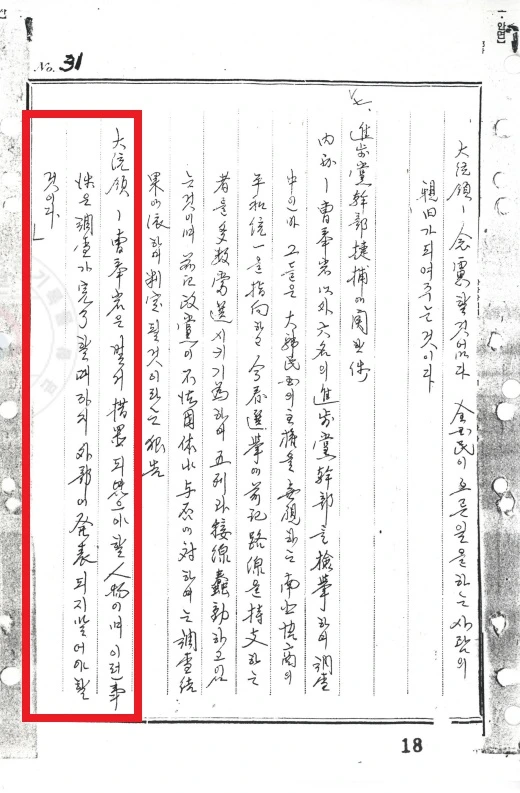 No. 31
大統領ㅣ 念慮할것없다 全国民이 오른일을하는사람의
親旧가되여주는것이다
進歩黨幹部逮捕에関한件
內務ㅣ 曺奉岩以外六名의進歩黨幹部를檢擧하여調査
中인바 그들은大韓民国의主権을無視하는南北協商의
平和統一을指向하고 今春選擧에前記路線을持支하는
者를多數當選시키기爲하여 五列과接線蠢動하고있
는것이며 前記政黨이不法団体냐与否에対하여는調査結
果에依하여判定될것이라는報告
大統領ㅣ 曺奉岩은벌서措置되였어야할人物이며이런事
件은調査가完了할때까지外部에発表되지말어야할
것이다」
18